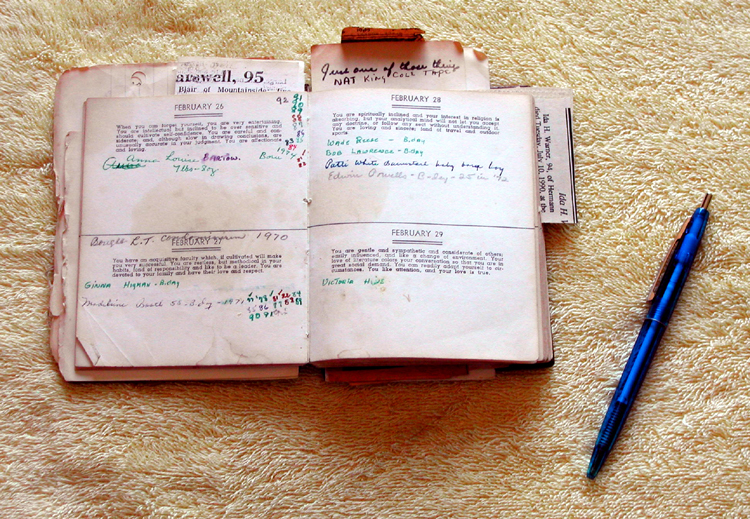 arswell, 95
Blair of Mountainside
Just one of those things
NAT KING COLE TAPE
Ida H. Warner, 94, of Hermann
died Tuesday, July 10, 1990, at the
Ida H.
FEBRUARY 26
92
When you forget yourself, you are very entertaining.
You are intellectual but inclined to be over sensitive and
should cultivate self-confidence. You are careful and con-
siderate, and, although slow in drawing conclusions, are
unusually accurate in your judgment. You are affectionate
and loving.
Anna Louise BARTOW. Born
7lbs-3oz
1970
FEBRUARY 27
You have an acquisitive faculty which, if cultivated will make
you very successful. You are restless, but methodical in your
habits, fond of responsibility and like to be a leader. You are
devoted to your family and have their love and respect.
GINNA HYMAN - B.DAY
Madeline
90 91
FEBRUARY 28
You are spiritually inclined and your interest in religion is
absorbing, but your analytical mind will not let you accept
any doctrine, or follow any sect without understanding it.
You are loving and sincere; fond of travel and outdoor
sports.
WADE REESE - B.DAY
BOB LAWRENCE - B.DAY
Patti White baby boy
Edwin Powells - B-day - 25 in '92
FEBRUARY 29
You are gentle and sympathetic and considerate of others;
easily influenced, and like a change of environment. Your
love of literature colors your conversation so that you are in
great social demand. You can readily adapt yourself to cir-
cumstances. You like attention, and your love is true.
VICTORIA